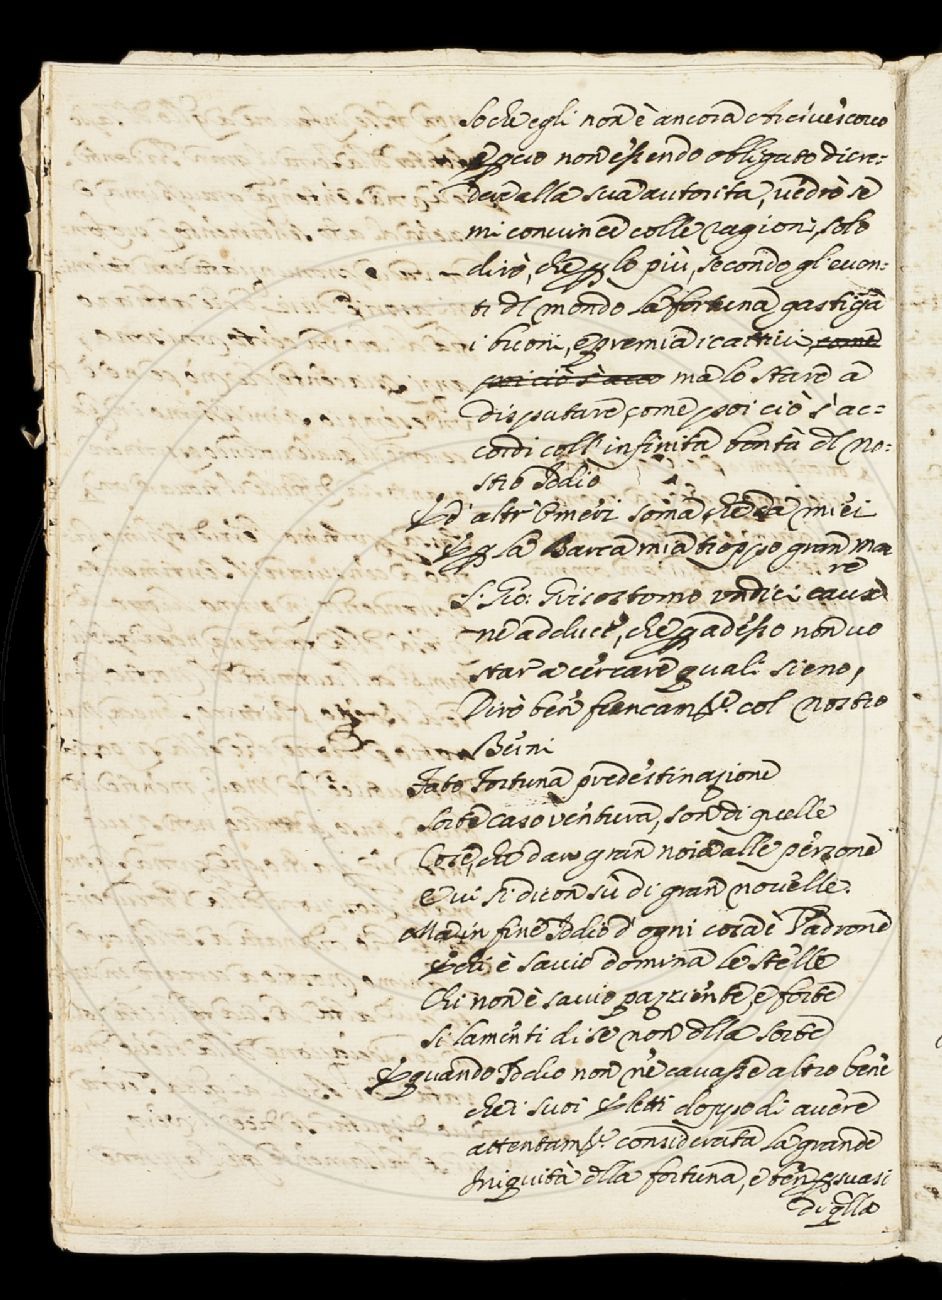 So che egli non è ancora Arcivescovo
e però non essendo obligato di cre=
dere alla sua autorità, vedrò se
mi convince colle ragioni, solo
dirò, che p lo più, secondo gl'even=
ti dl mondo la fortuna gastiga
i buoni, e premia i cattivi, come
poi ciò s'acco ma lo stare a
disputare come poi ciò s'ac=
cordi coll'infinita bontà dl No=
stro Iddio
E d'altr'Omeri soma, che da' miei
E p la Barca mia troppo gran Ma
re
S: Gio: Gricostomo undici cause
ne adduce, che p adesso non vo
star a cercare quali sieno,
Dirò ben francam.te col nostro
Berni
Fato Fortuna predestinazione
sorte caso ventura, son di quelle
Cose, che dan gran noia alle persone
e vi si dicon su di gran novelle.
Ma in fine Iddio d'ogni cosa è Padrone
E chi è savio domina le stelle
Chi non è savio paziente, e forte
si lamenti di se non dlla sorte
E quando Iddio non ne cavasse altro bene
che i suoi Eletti doppo di avere
attentam.te considerata la grande
Iniquità dlla fortuna, e ben psuasi
di qlla